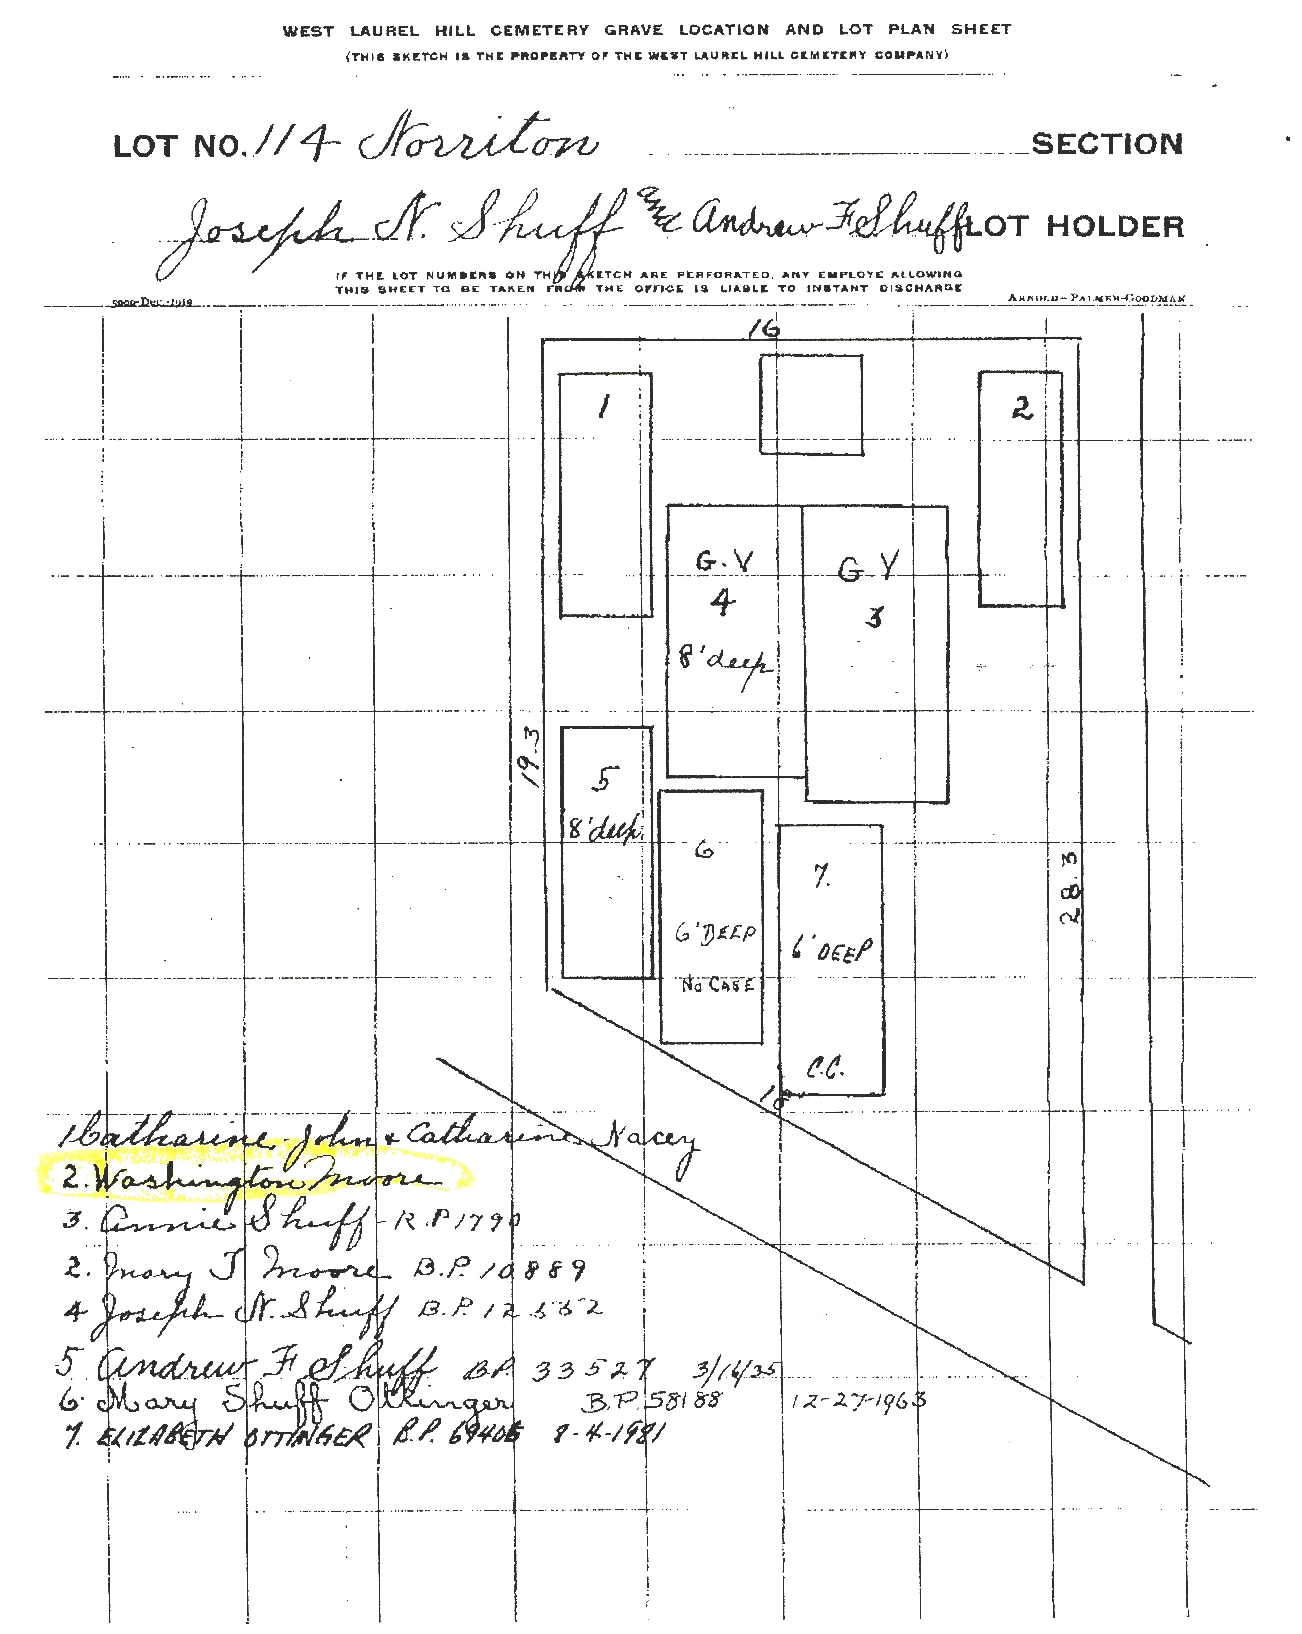 WEST LAUREL HILL CEMETERY GRAVE LOCATION AND LOT PLAN SHEET
(THIS SKETCH IS THE PROPERTY OF THE WEST LAUREL HILL CEMETERY COMPANY)
LOT NO. 114 Norriton SECTION
Joseph N. Shuff and Andrew F Shuff LOT HOLDER
IF THE LOT NUMBERS ON THIS SKETCH ARE PERFORATED, ANY EMPLOYE ALLOWING
THIS SHEET TO BE TAKEN FROM THE OFFICE IS LIABLE TO INSTANT DISCHARGE
5000-Dec.-1919 ARNOLD-PALMER-GOODMAN
16
1
2
G.V
4
8' deep
G V
3
19.3
5
8' deep
6
6' DEEP
No CASE
7.
6' DEEP
C.C.
28.3
18
1 Catharine John & Catharine Nacey
2. Washington Moore
3. Annie Shuff - R.P 1790
2. Mary J Moore B.P. 10889
4 Joseph N. Shuff B.P.
5 Andrew F. Shuff B.P. 33527 3/16/35
6. Mary Shuff Ottinger B.P. 58188 12-27-1963
7. ELIZABETH OTTINGER B.P. 8-4-1981